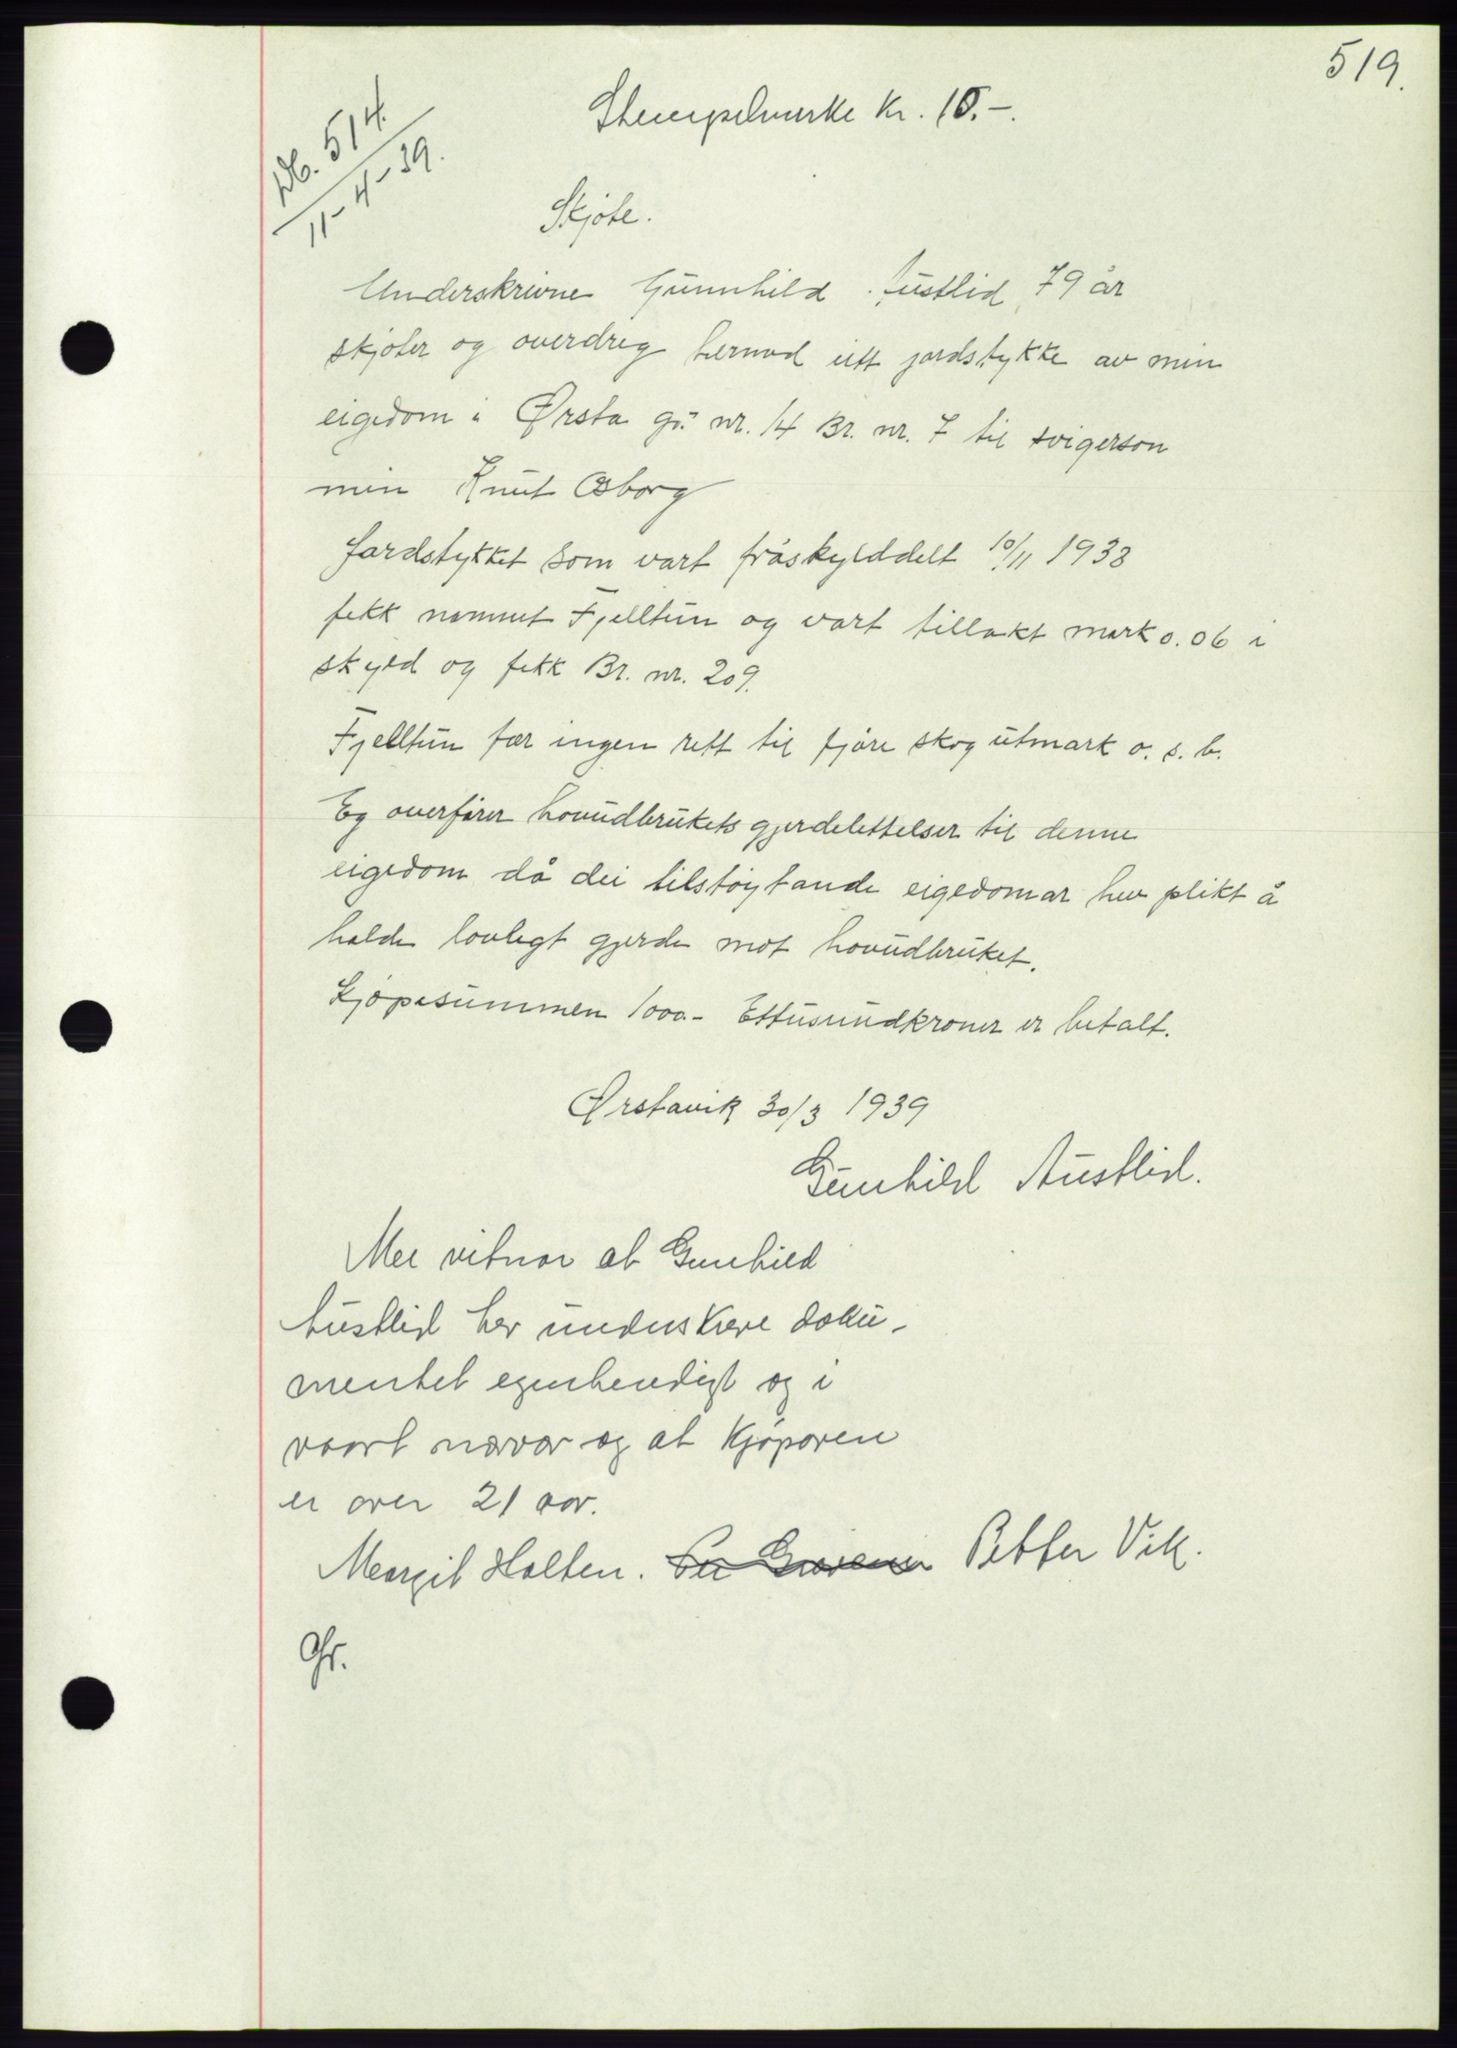 519.
Db. 514.
11-4-39.
Stempelmerke Kr. 10.-.
Skjøte.
Underskrivne Gunnhild Austlid 79 år
skjøter og overdreg hermed eitt jordstykke av min
eigedom i Ørsta gr. nr. 14 Br. nr. 7 til svigerson
min Knut Osborg
Jordstykket som vart fråskylddelt 10/11 1938
fekk namnet Fjelltun og vart tillakt mark 0.06 i
skyld og fekk Br. nr. 209.
Fjelltun fær ingen rett til fjøre skog utmark o. s. b.
Eg overfører hovudbrukets gjerdelettelser til denne
eigedom då dei tilstøytande eigedomar hev plikt å
halde lovlegt gjerde mot hovudbruket.
Kjøpesummen 1000.- Ettusundkroner er betalt.
Ørstavik 30/3 1939
Gunhild Austlid.
Mee vitnar at Gunhild
Austlid hev underskreve doku-
mentet egenhendigt og i
vaart nærvær og at Kjøparen
er over 21 aar.
Margit Holten. Petter Vik.
Gr.